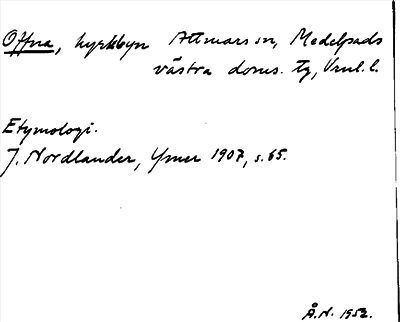 Offna, kyrkbyn Attmars sn, Medelpads
västra doms. tg, Vrnl. l.
Etymologi.
J. Nordlander, Ymer 1907, s. 65.
Å.N. 1952.